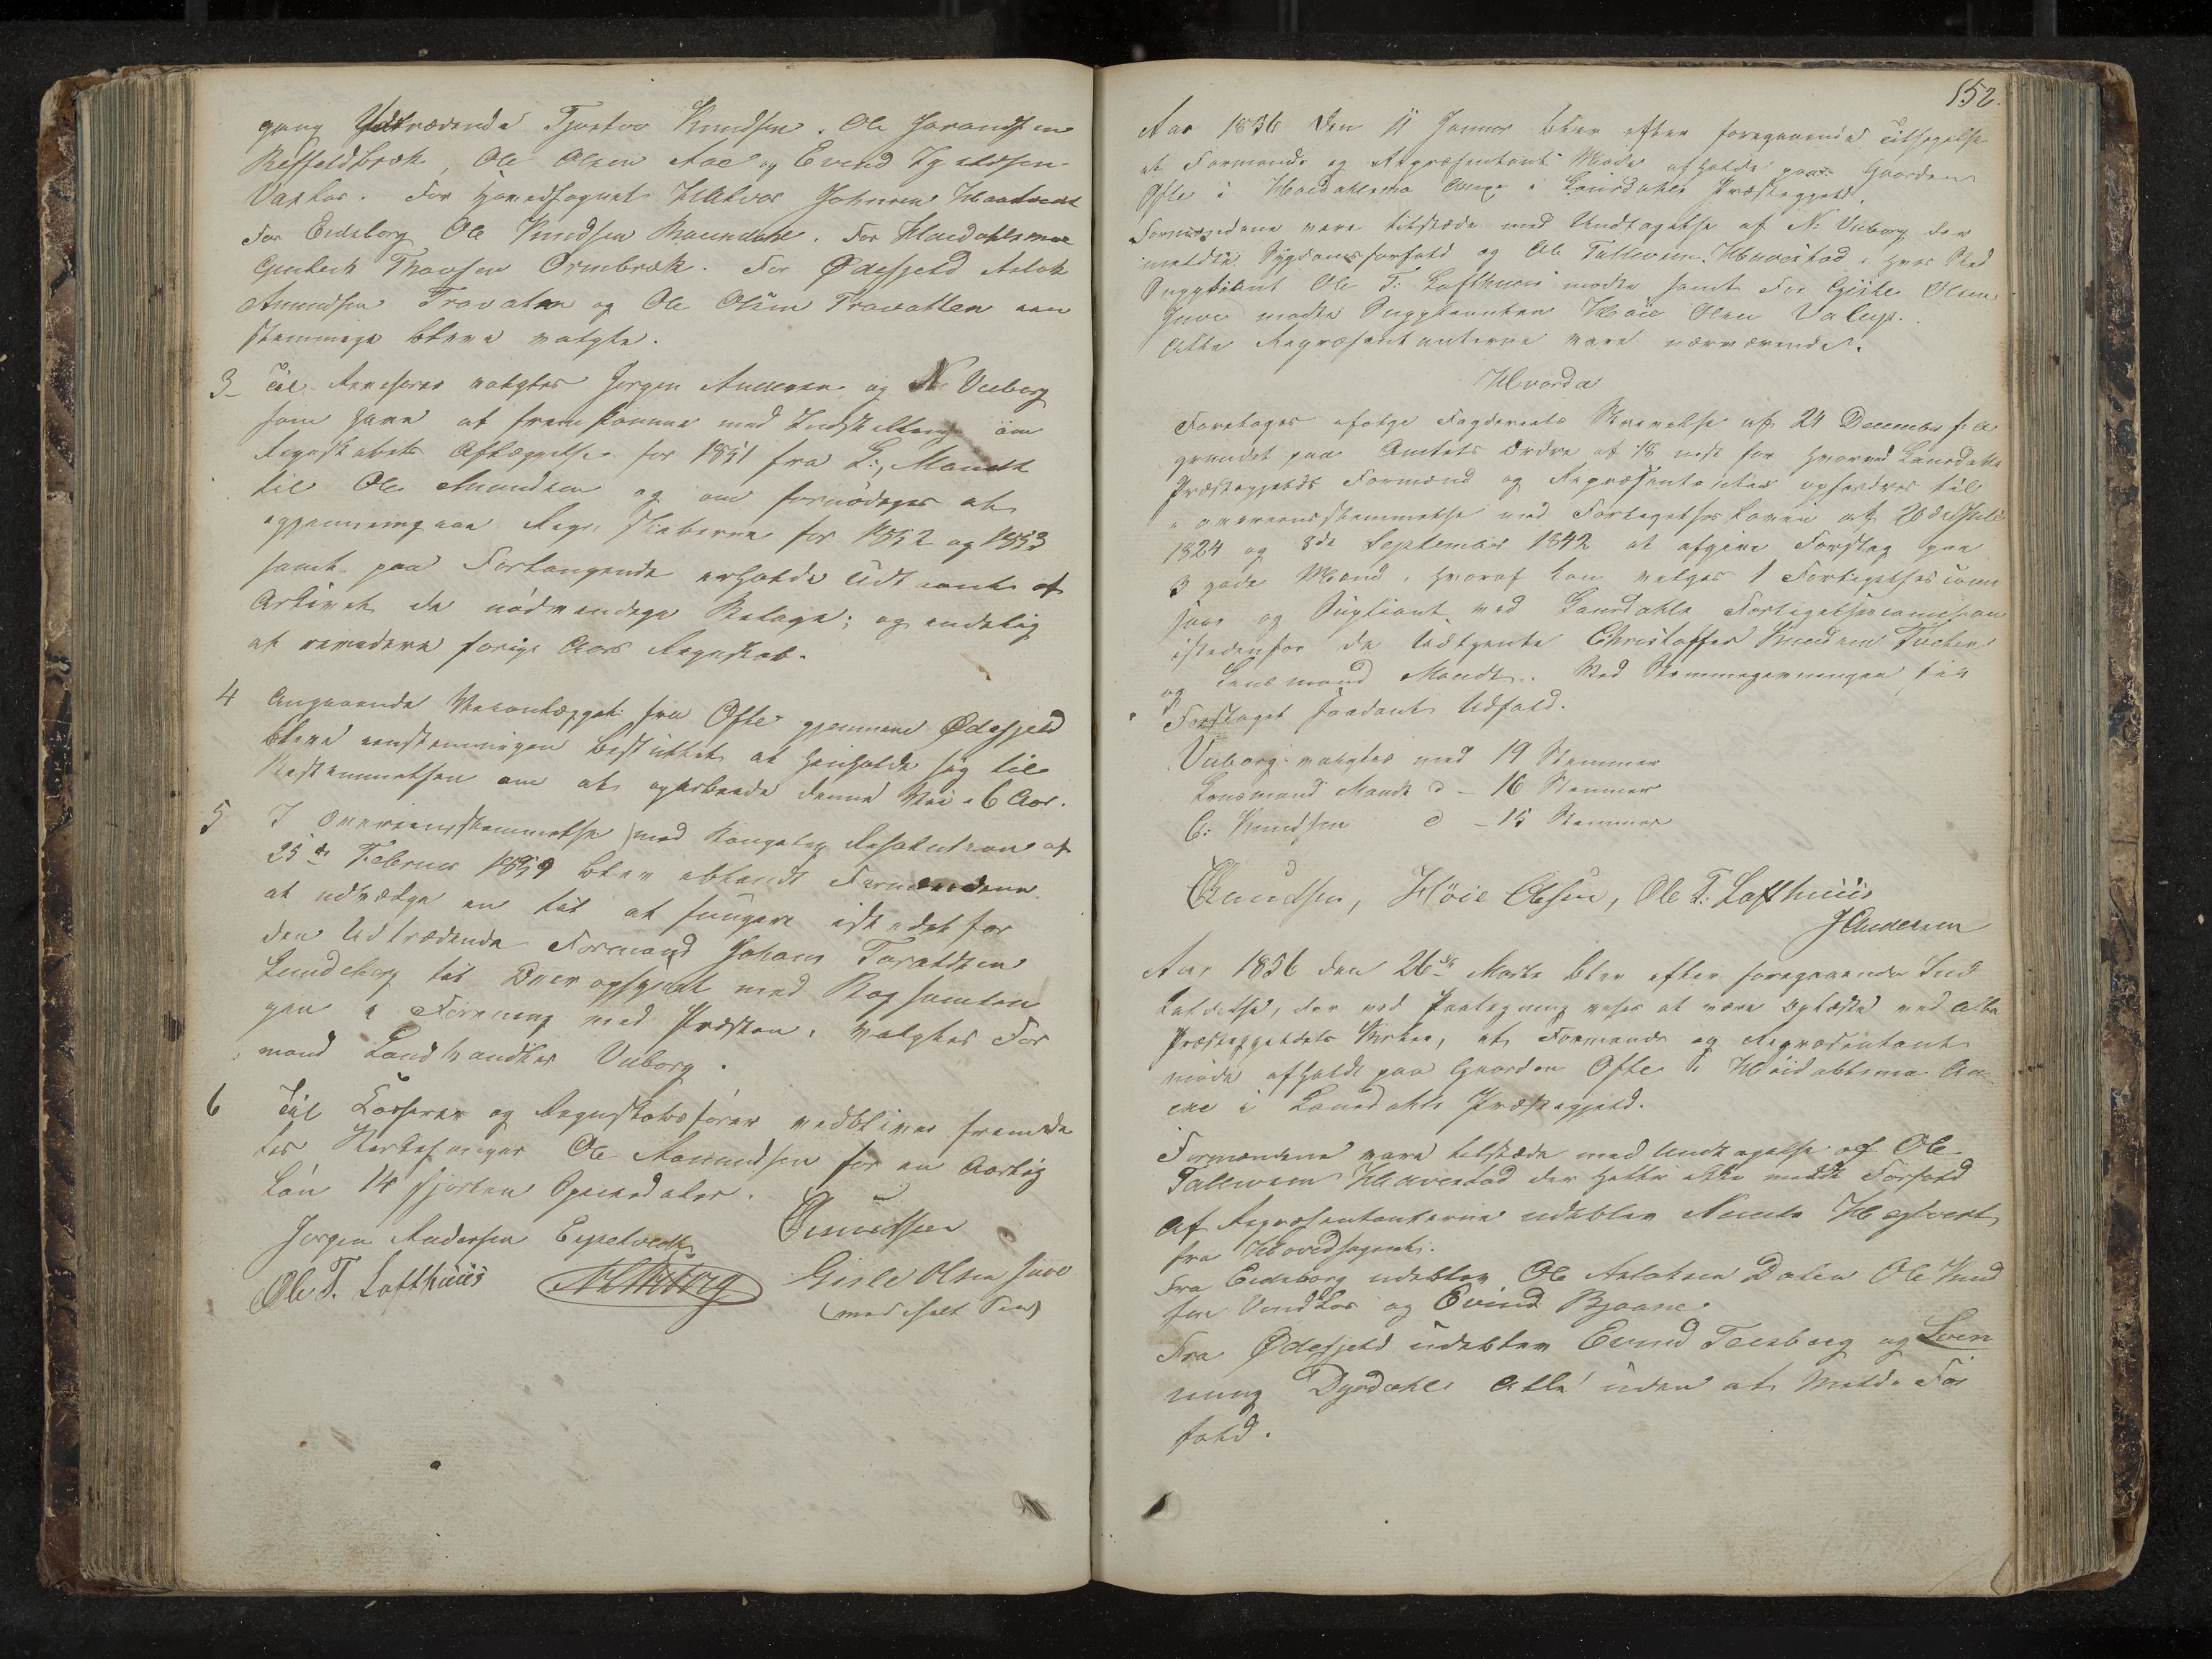 gang Udtrædende Tjostov Knudsen. Ole Jorandsen
Ole Olsen Aae og Evend
Vaskos. For Hovedsognet Halvor Johnsen
For Eidsborg Ole Knudsen Ravndahl. For Høidahlsmoe
Gunleik Thovsen Ormbræk. For Ødefjeld Aslak
Amundsen Trovaten og Ole Olsen Trovatten een
stemmige bleve valgte.
3 Til Revisorer valgtes Jørgen Andersen og N: Vieborg
som have at fremkomme med Indstilling om
Regnskabets Aflæggelse for 1851 fra L: Mandt
til Ole Amundsen og om fornødeges at
igjennemgaae Regnskaberne for 1852 og 1853
samt paa Forlangende erholde Udt af
Arkivet de nødvendige Bilage; og endelig
at revidere forige Aars Regnskab.
4 Angaaende Veianlægget fra Ofte gjennem Ødefjeld
bleve eenstemmigen besluttet at henholde sig til
Bestemmelsen om at oparbeide denne Vei i 6 Aar.
5 I Overeensstemmelse med Kongelig Resolution af
25de Februar 1859 blev iblandt Formændene
at udvælge en til at fungere istedet for
den Udtrædende Formand Johans Taraldsen
Lundeberg til Overopsyn med Bogsamlin
gen i Forening med Præsten, valgtes For
mand Landhandler Vieborg.
6 Til Kasserer og Regnskabsfører vedbliver fremde
les Kirkesanger Ole Aamundsen for en Aarlig
Løn 14 fjorten Speciedaler.
Jørgen Andersen Espetvedt Knudsen
Ole T. Lofthuus NLVieborg Gisle Olsen Juve
(med iholt Pen)
152.
Aar 1856 den 11 Januar blev efter foregaaende Tilsigelse
et Formands og Repræsentant Møde afholdt paa Gaarden
Ofte i Høidahlsmo Annex i Laurdahls Præstegjeld.
Formændene vare tilstæde med Undtagelse af N: Vieborg der
meldte Sygdomsforfald og Ole Tallevsen Haverstad i hvis Sted
Suppleant Ole T. Lofthuus mødte samt For Gisle Olsen
Juve mødte Suppleanten Høie Olsen
Alle Repræsentanterne vare nærværende.
Hvorda
Foretoges ifølge Fogderiets Skrivelse af 24 December f: A
grundet paa Amtets Ordre af 18 næst før hvorved Laurdahls
Præstegjelds Formænd og Repræsentanter opfordres til
i overeensstemmelse med Forligelses Loven af 20de Juli
1824 og 8de September 1842 at afgive Forslag paa
3 gode Mænd, hvoraf kan vælges 1 Forligelsescomi
sair og Supliant ved Laurdahls Forligelsescomission
istedenfor de Udtjente Christoffer Knudsen
og Lensmand Mandt. Ved Stemmegivningen fik
Forslaget saadant Udfald.
Vieborg valgtes med 19 Stemmer
Lensmand Mandt d – 16 Stemmer
C: Knudsen d – 15 Stemmer
CKnudsen, Høie Olsen, Ole T. Lofthuus
JAndersen
Aar 1856 den 26de Marts blev efter foregaaende Ind
kaldelse, der ved Paategning viser at være oplæste ved alle
Præstegjeldets Kirker, et Formands og Repræsentant
møde afholdt paa Gaarden Ofte i Høidahlsmo An
exe i Laurdahls Præstegjeld.
Formændene vare tilstæde med Undtagelse af Ole
Tallevsen Haverstad der heller ikke meldte Forfald
Af Repræsentanterne udeblev
fra Hovedsognet.
Fra Eidsborg udeblev Ole Aslaksen Dalen Ole Knud
sen og Evind Bjaane.
Fra Ødefjeld udeblev Evind og Sven
nung Dyrdahl Alle uden at Melde For
fald.